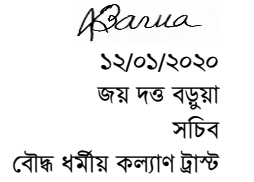 Barua
১২/০১/২০২০
জয় দত্ত বড়ুয়া
সচিব
বৌদ্ধ ধর্মীয় কল্যাণ ট্রাস্ট